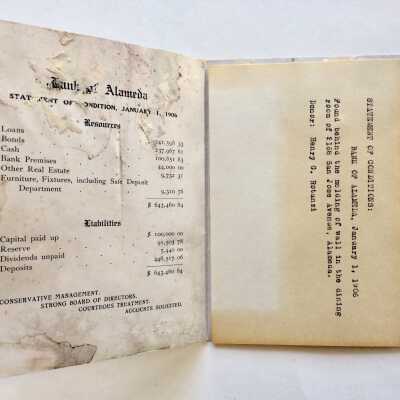 Bank of Alameda
STATEMENT OF CONDITION, JANUARY 1, 1906
Resources
Loans
Bonds
Cash
Bank Premises
Other Real Estate 44,000 00
Furniture, Fixtures, including Safe Deposit
Department 9,310 76
$ 643,460 84
Liabilities
Capital paid up $ 100,000 00
Reserve
Dividends unpaid
Deposits
$ 643,460 84
CONSERVATIVE MANAGEMENT.
STRONG BOARD OF DIRECTORS.
COURTEOUS TREATMENT.
ACCOUNTS SOLICITED.
STATEMENT OF CONDITIONS:
BANK OF ALAMEDA, January 1, 1906
Found behind the molding of wall in the dining
room of 2105 San Jose Avenue, Alameda.
Donor: Henry G.